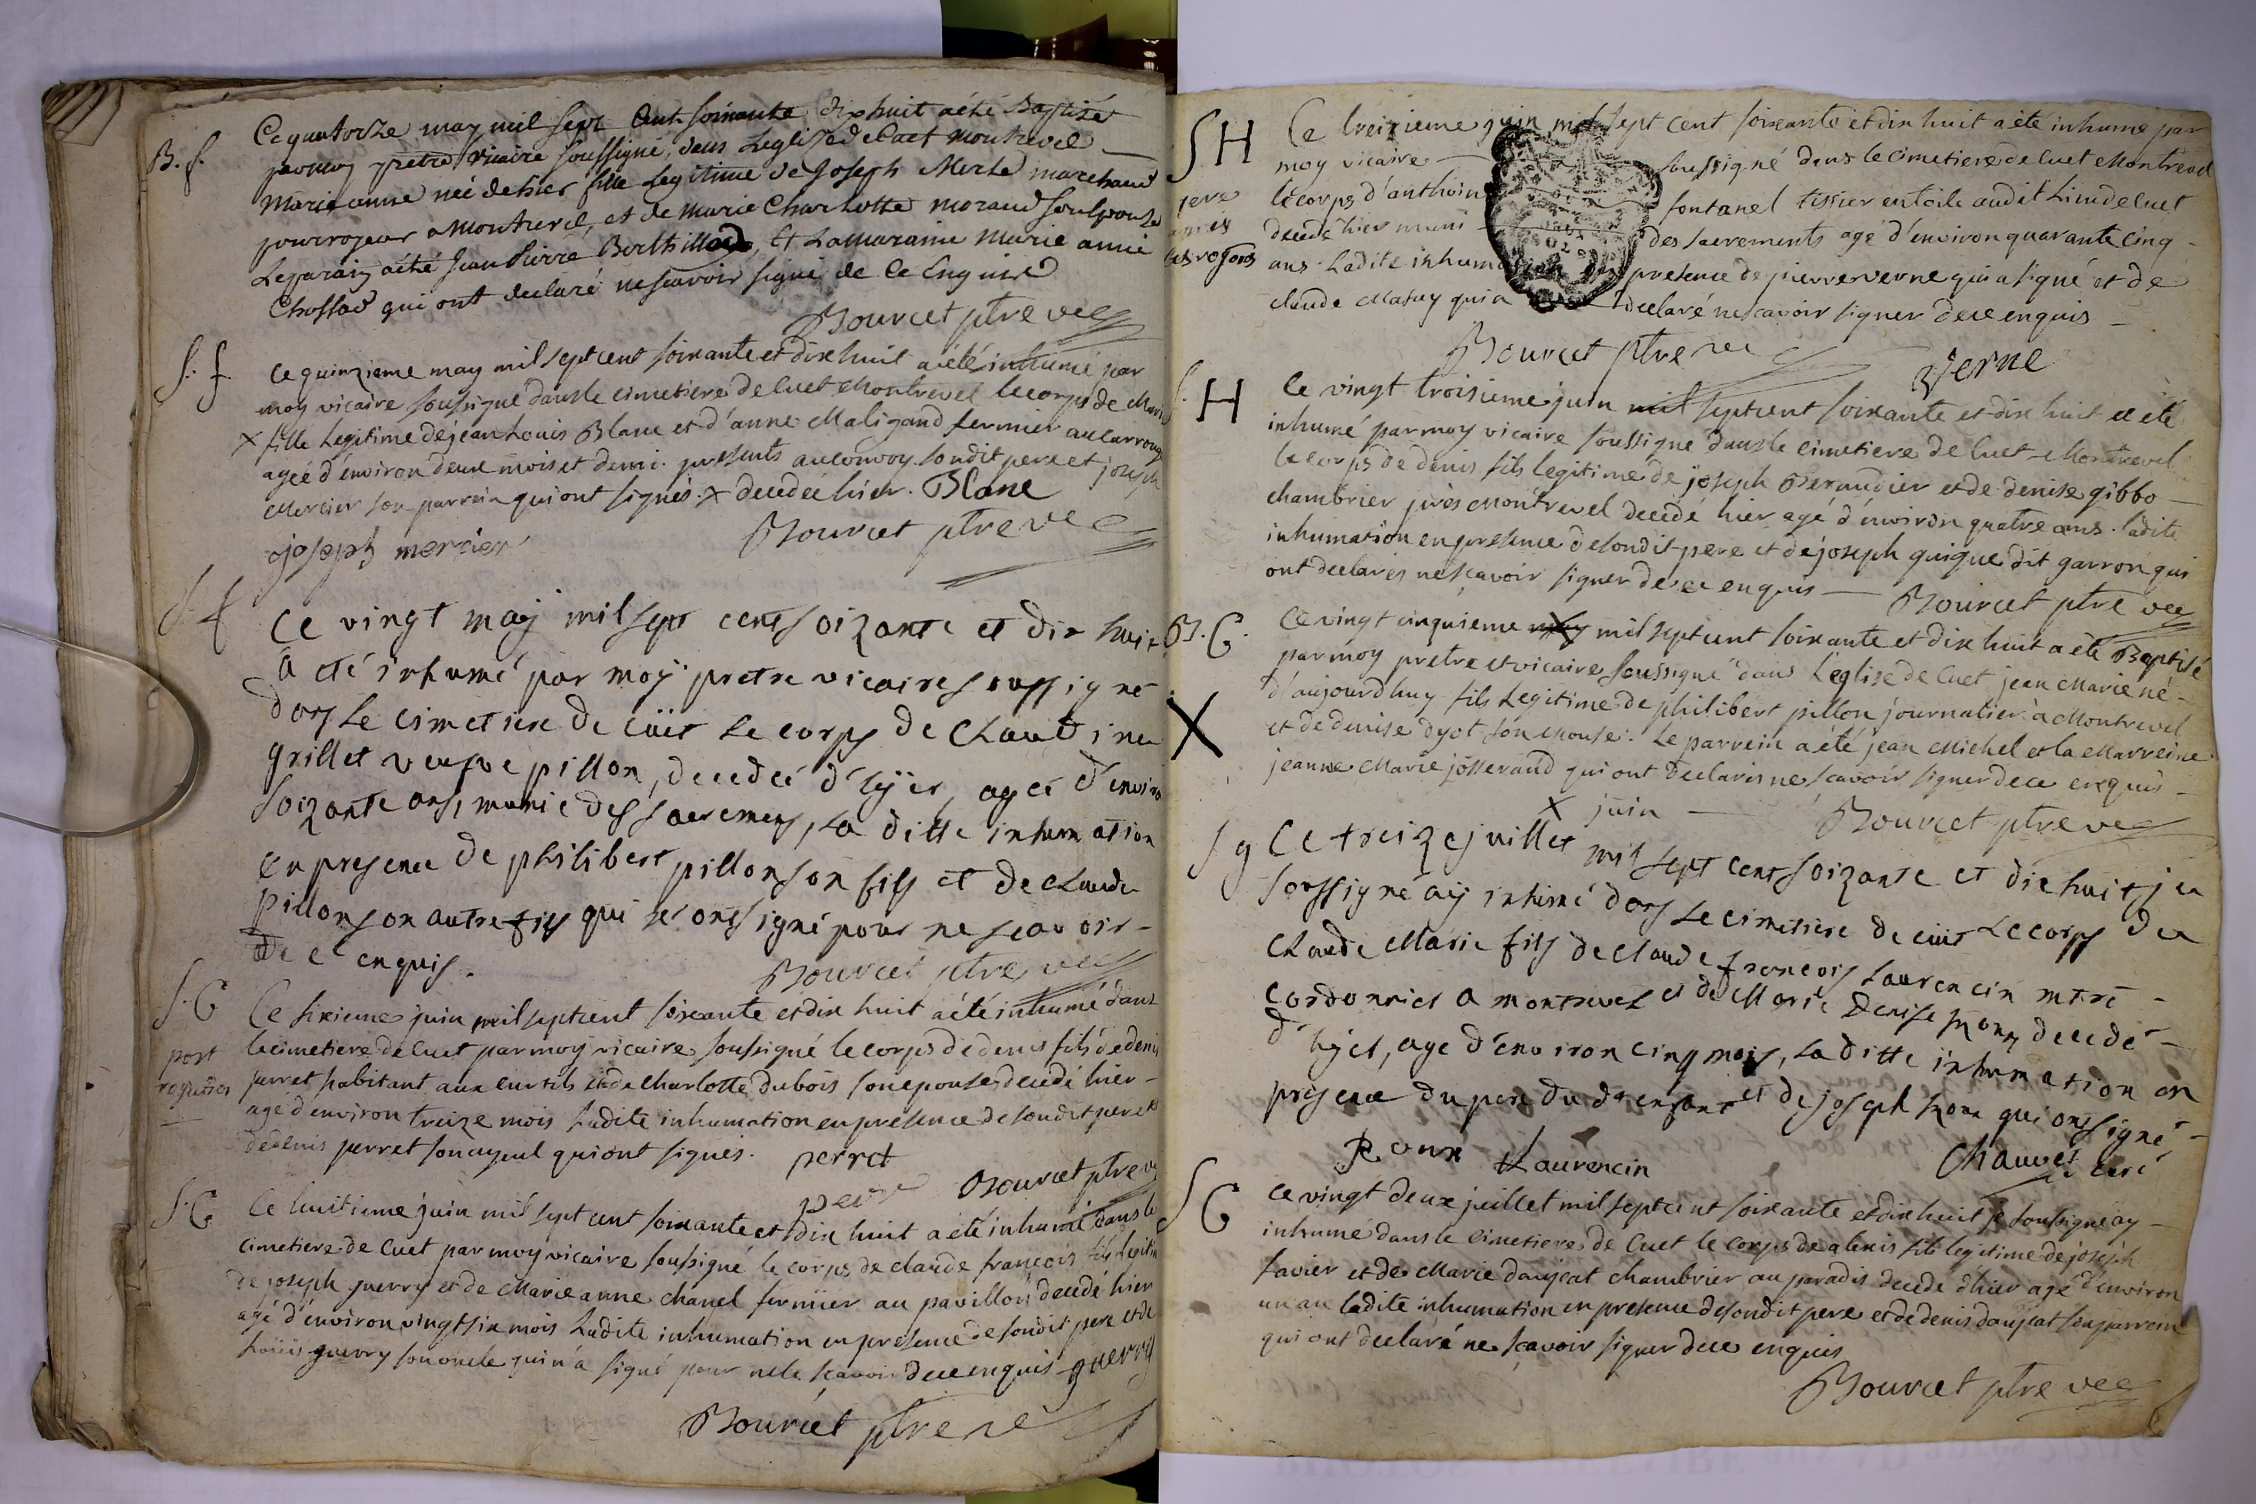 B. f.
Ce quatorze may mil sept cent soixante dix huit a été Baptizé
par moy pretre vicaire soussigné, dans Leglize de Cuet montrevel
marie anne née de hier fille legitime de Joseph Merle marchand
pourvoyeur a Montrevel, et de marie Charlotte morand son epouse
Le parain a été Jean Pierre Berthillod, Et La maraine Marie anne
Chossad qui ont declaré ne scavoir signé de Ce Enquird
Bourcet ptre vic
S. f.
Ce quinzieme may mil sept cent soixante et dix huit a été inhumé par
moy vicaire soussigné dans le cimetiere de Cuet Montrevel le corps de Marie
x fille Legitime de jean Louis Blanc et d'anne Maligand fermier au carrouge
agée d'environ deux mois et demi. presents au convoy sondit pere et joseph
Mercier son parrein qui ont signés. x decedée hier. Blanc
joseph mercier
Bourcet ptre vic
S. f
Ce vingt maÿ mil sept cent soizante et dix huit
a eté inhumé par moÿ pretre vicaire soussigné
dans le cimetiere de cüet le corps de Claudine
grillet veufve pillon, decedeé d'hÿer, ageé d'enviro
soizante ans, munie des sacremens, la ditte inhumation
en presence de philibert pillon son fils et de claude
pillon son autre fils qui ne ont signé pour ne scavoir -
de ce enquis.
Bourcet ptre vic
S. G
post
Ce sixieme juin mil sept cent soixante et dix huit a été inhumé dans
le cimetiere de Cuet par moy vicaire soussigné le corps de denis fils de denis
perret habitant aux curtils et de charlotte dubois son epouse decedé hier -
agé d'environ treize mois Ladite inhumation en presence de sondit pere et
de denis perret son ayeul qui ont signés. perret
Bourcet ptre v
S. G
Ce huitieme juin mil sept cent soixante et dix huit a été inhumé dans le
cimetiere de Cuet par moy vicaire soussigné le corps de claude francois fils legitim
de joseph guerry et de Marie anne chanel fermier au pavillon decedé hier
agé d'environ vingt six mois Ladite inhumation en presence de sondit pere et de
Loüis guerry son oncle qui n'a signé pour ne le scavoir de ce enquis guerry
Bourcet ptre vic
S H
Ce treizieme juin mil sept cent soixante et dix huit a été inhumé par
moy vicaire soussigné dans le cimetiere de Cuet Montrevel
le corps d'anthoin fontanel tissier en toile audit Lieu de Cuet
decedé hier muni des sacrements agé d'environ quarante cinq -
ans. Ladite inhumation en presence de pierre verne qui a signé et de
claude Mathy qui a declaré ne scavoir signer de ce enquis -
Bourcet ptre vic
verne
S. H
Ce vingt troisieme juin mil sept cent soixante et dix huit a été
inhumé par moy vicaire soussigné dans le cimetiere de Cuet Montrevel
le corps de denis fils legitime de joseph Beraudier et de denise gibbo -
chambrier près Montrevel decedé hier agé d'environ quatre ans. Ladite
inhumation en presence de sondit pere et de joseph guigue dit garron qui
ont declarés ne scavoir signer de ce enquis - Bourcet ptre vic
B. G.
X
Ce vingt cinquieme mil sept cent soixante et dix huit a été Baptisé
par moy pretre et vicaire soussigné dans L'eglise de Cuet jean Marie né -
d'aujourdhuy fils Legitime de philibert pillon journalier à Montrevel
et de denise dyot son epouse. Le parrein a été jean Michel et la Marreine
jeanne Marie josserand qui ont declarés ne scavoir signer de ce enquis -
x juin -
Bourcet ptre vic
S g
Ce treize juillet mil sept cent soizante et dix huit je
soussigné aÿ inhumé dans le cimetiere de cüet le corps de
claude Marie fils de claude francois Laurencin mtre -
cordonnier a montrevel et de Marie denise decedé -
d'hÿer, age d'environ cinq mois, la ditte inhumation en
presence du pere du dt enfant et de joseph qui ont signé -
Laurencin
Chauvet
curé
S G
Ce vingt deux juillet mil sept cent soixante et dix huit je soussigné ay -
inhumé dans le cimetiere de Cuet le corps de alexis fils legitime de joseph
favier et de Marie daujeat chambrier au paradis decedé d'hier agé d'environ
un an ladite inhumation en presence de sondit pere et de denis daujeat son parrein
qui ont declaré ne scavoir signer de ce enquis
Bourcet ptre vic